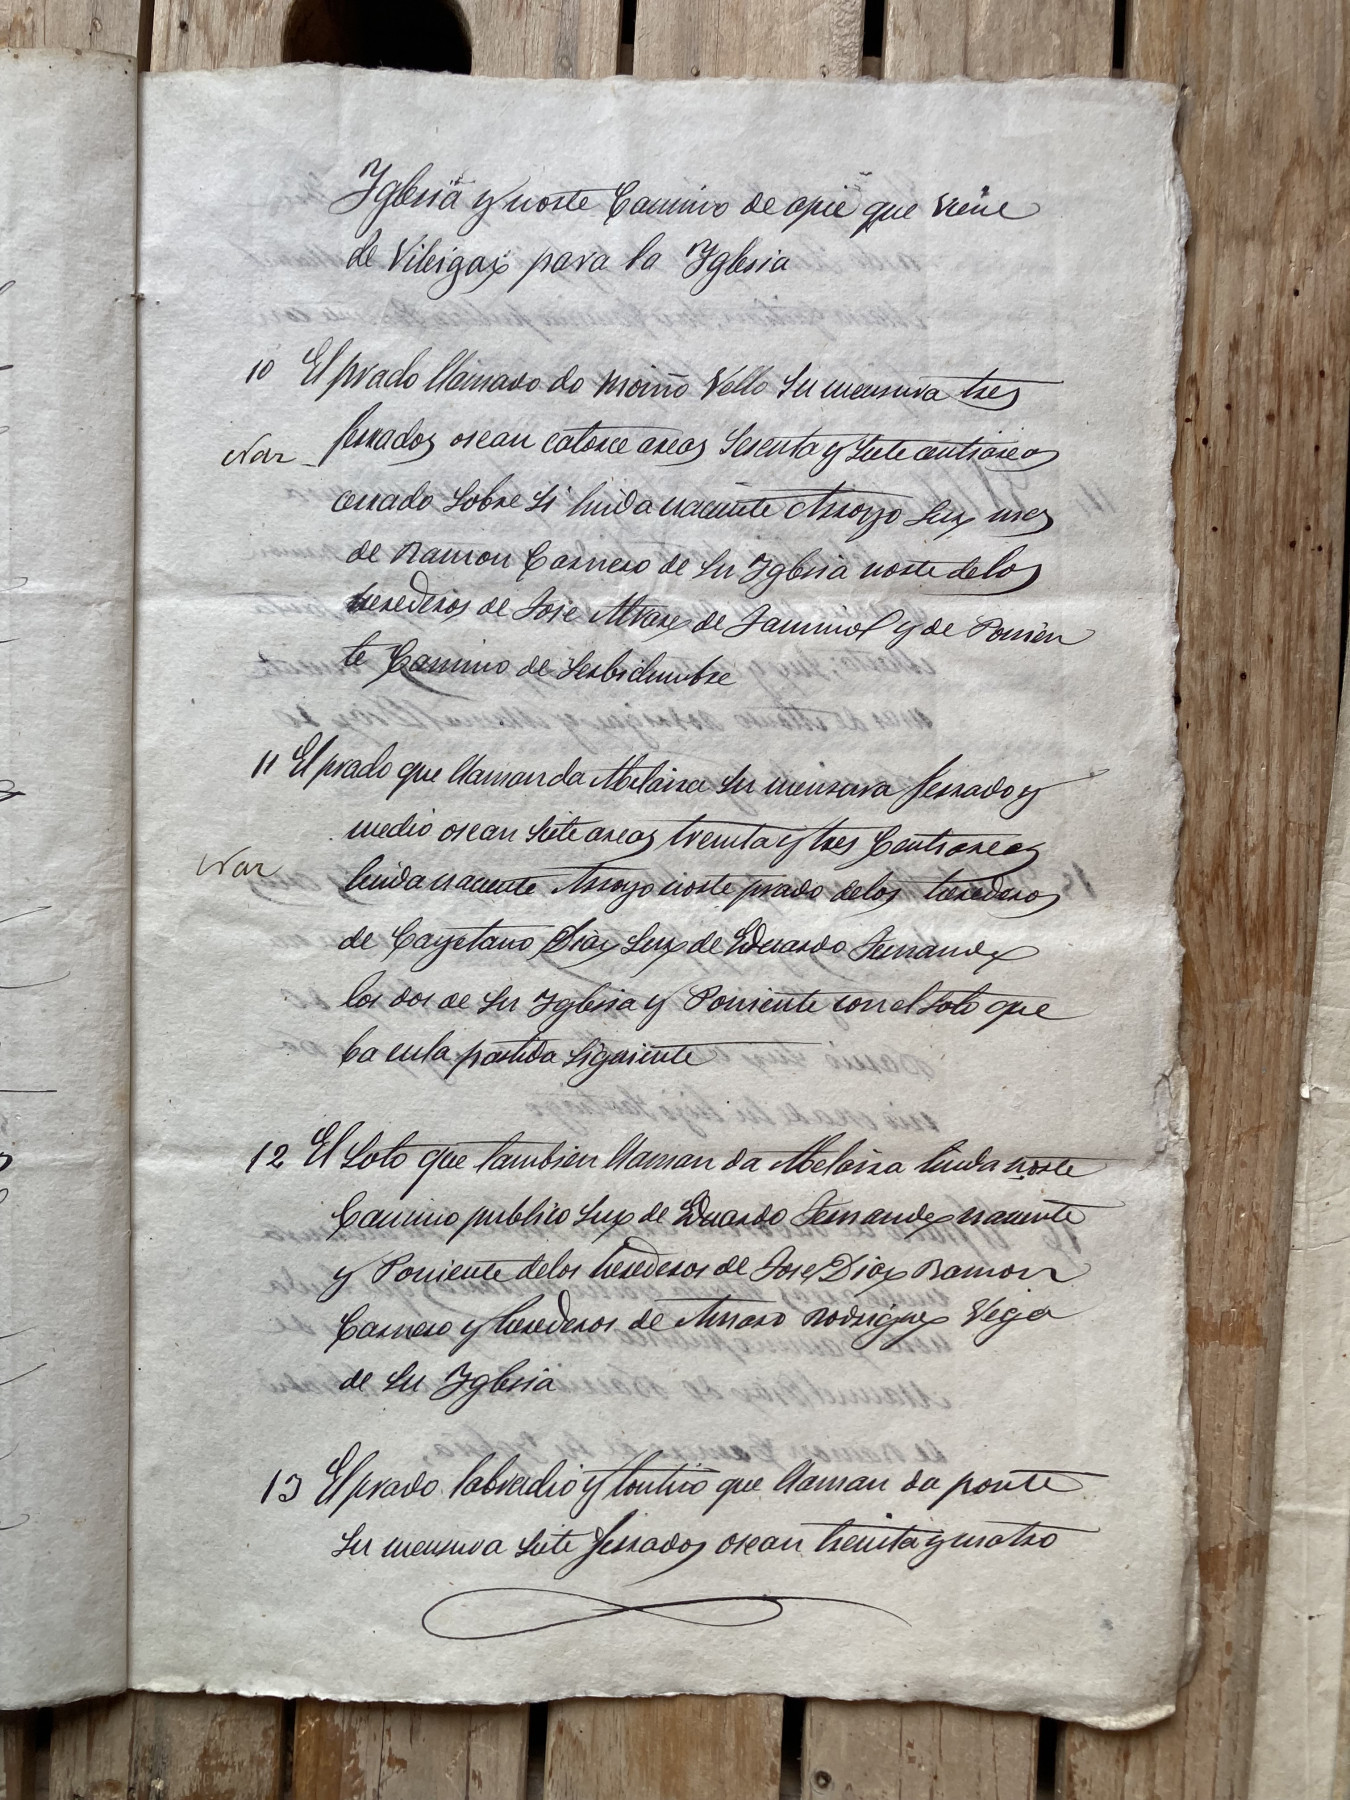 Iglesia y norte Camino de apie que viene
de Vileigax para la Iglesia
10 El prado llamado do moiño Vello su mensura tres
ferrados osean catorce areas Sesenta y siete centiareas
cerrado Sobre si linda naciente Arroyo Sur mas
de Ramon Carnero de su Iglesia norte delos
herederos de Jose Alvarez de y de Ponien
te Camino de Serbidumbre
11 El prado que llaman da Abelaira su mensura ferrado y
medio osean siete areas treinta y tres Centiareas
linda naciente Arroyo norte prado delos herederos
de Cayetano Diaz Sur de Eduardo Fernandez
los dos de su Iglesia y Poniente con el soto que
ba enla partida siguiente
12 El soto que tambien llaman da Abelaira linda norte
Camino publico Sur de Eduardo Fernandez naciente
y Poniente delos herederos de Jose Diaz Ramon
Carnero y herederos de Rodriguez Vega
de su Iglesia
13 El prado labradio y que llaman da ponte
su mensura siete ferrados osean treinta y cuatro